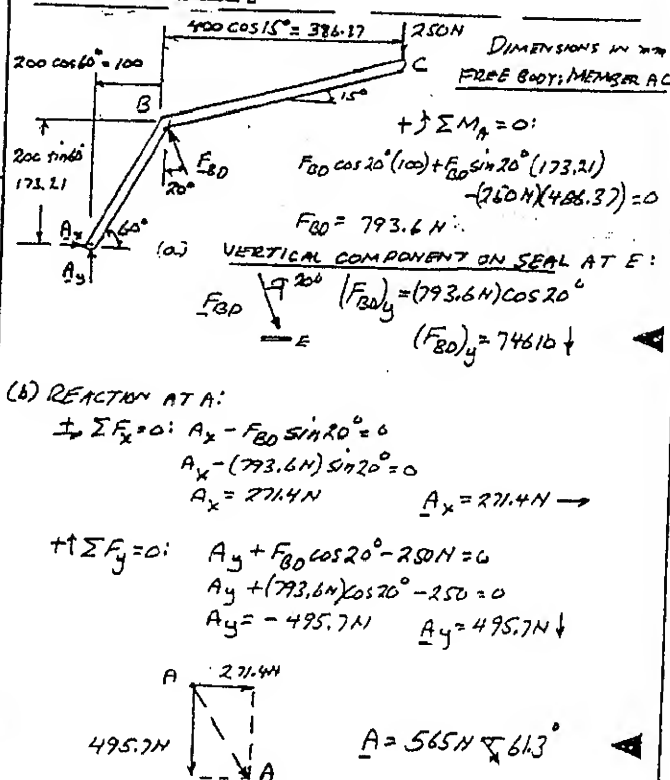 400 cos15° = 386.37
250N
DIMENSIONS IN mm
200 cos60° = 100
C
FREE BODY: MEMBER AC
B
15°
+↺ ΣM_A = 0:
200 sin60°
173.21
F_BD
20°
F_BD cos20°(100) + F_BD sin20°(173.21)
-(250 N)(486.37) = 0
F_BD = 793.6 N
A_x
60°
A_y
(a) VERTICAL COMPONENT ON SEAL AT E:
F_BD
20°
(F_BD)_y = (793.6N) cos20°
E
(F_BD)_y = 746 lb ↓
(b) REACTION AT A:
+→ ΣF_x = 0: A_x - F_BD sin20° = 0
A_x - (793.6N) sin20° = 0
A_x = 271.4N A_x = 271.4N →
+↑ ΣF_y = 0: A_y + F_BD cos20° - 250N = 0
A_y + (793.6N) cos20° - 250 = 0
A_y = -495.7N A_y = 495.7N ↓
A 271.4N
495.7N
A = 565N 61.3°
A